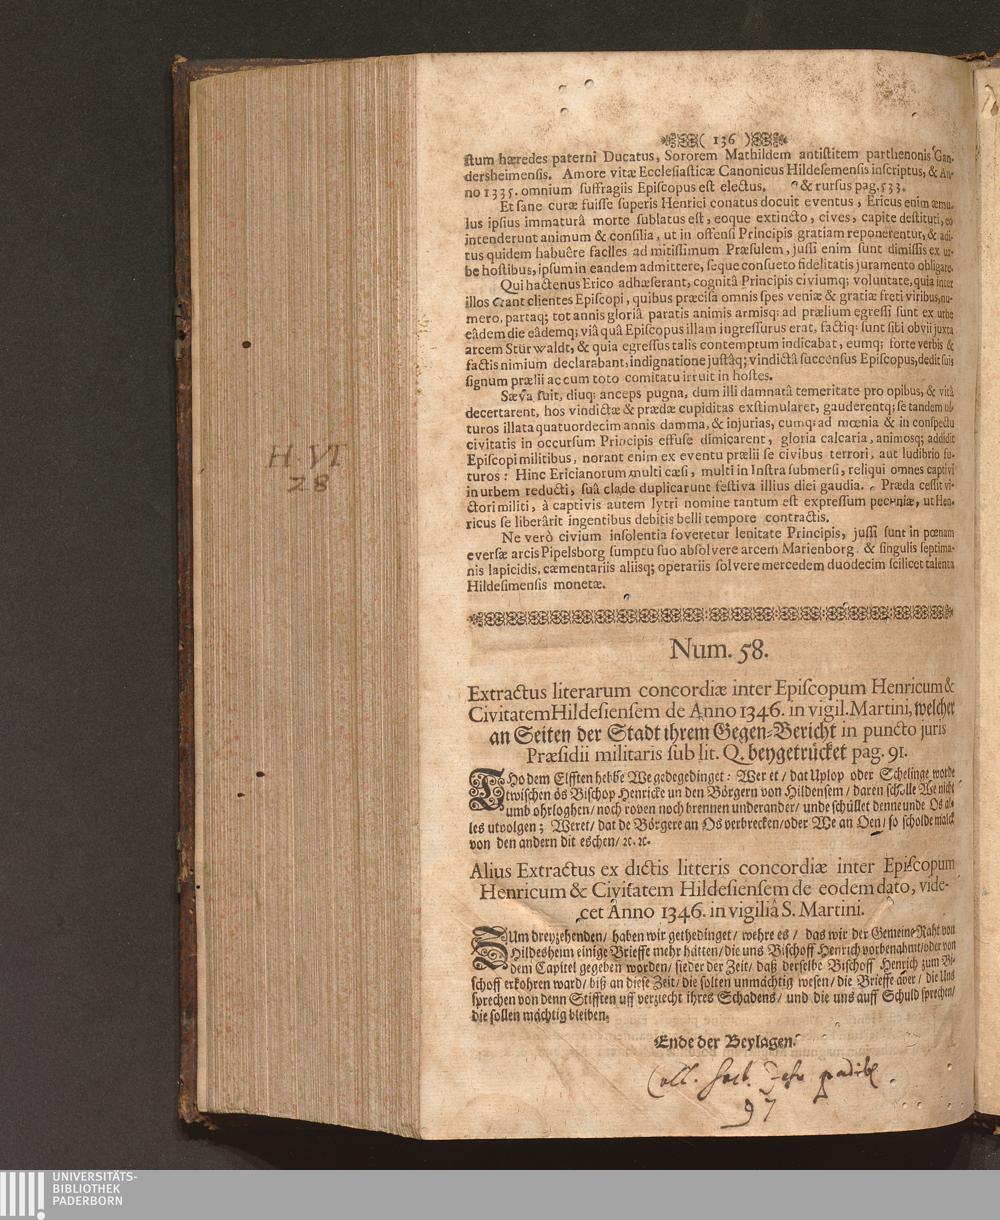 ( 136 )
ctum hæredes paterni Ducatus, Sororem Mathildem antistitem parthenonis Gan-
dersheimensis. Amore vitæ Ecclesiasticæ Canonicus Hildesemensis inscriptus, & An-
no 1335. omnium suffragiis Episcopus est electus. & rursus pag. 533.
Et sane curæ fuisse superis Henrici conatus docuit eventus, Ericus enim æmu-
lus ipsius immaturâ morte sublatus est, eoque extincto, cives, capite destituti, eo
intenderunt animum & consilia, ut in offensi Principis gratiam reponerentur, & adi-
tus quidem habuêre faciles ad mitissimum Præsulem, jussi enim sunt dimissis ex ur-
be hostibus, ipsum in eandem admittere, seque consueto fidelitatis juramento obligare.
Qui hactenus Erico adhæserant, cognitâ Principis civiumq; voluntate, quia inter
illos erant clientes Episcopi, quibus præcisa omnis spes veniæ & gratiæ freti viribus, nu-
mero, partaq; tot annis gloriâ paratis animis armisq: ad prælium egressi sunt ex urbe
eâdem die eâdemq; viâ quâ Episcopus illam ingressurus erat, factiq: sunt sibi obvii juxta
arcem Stürwaldt, & quia egressus talis contemptum indicabat, eumq; forte verbis &
factis nimium declarabant, indignatione justâq; vindictâ succensus Episcopus, dedit suis
signum prælii ac cum toto comitatu irruit in hostes.
Sæva fuit, diuq: anceps pugna, dum illi damnatâ temeritate pro opibus, & vitâ
decertarent, hos vindictæ & prædæ cupiditas exstimularet, gauderentq; se tandem ul-
turos illata quatuordecim annis damma, & injurias, cumq: ad mœnia & in conspectu
civitatis in occursum Principis effuse dimicarent, gloria calcaria, animosq; addidit
Episcopi militibus, norant enim ex eventu prælii se civibus terrori, aut ludibrio fu-
turos: Hinc Ericianorum multi cæsi, multi in Instra submersi, reliqui omnes captivi
in urbem reducti, suâ clade duplicarunt festiva illius diei gaudia. Præda cessit vi-
ctori militi, à captivis autem lytri nomine tantum est expressum pecuniæ, ut Hen-
ricus se liberârit ingentibus debitis belli tempore contractis.
Ne verò civium insolentia foveretur lenitate Principis, jussi sunt in pœnam
eversæ arcis Pipelsborg sumptu suo absolvere arcem Marienborg. & singulis septima-
nis lapicidis, cæmentariis aliisq; operariis solvere mercedem duodecim scilicet talenta
Hildesimensis monetæ.
Num. 58.
Extractus literarum concordiæ inter Episcopum Henricum &
Civitatem Hildesiensem de Anno 1346. in vigil. Martini, welcher
an Seiten der Stadt ihrem Gegen-Bericht in puncto juris
Præsidii militaris sub lit. Q. beygetrücket pag. 91.
THo dem Elfften hebbe We gedegedinget: Wer et / dat Uplop oder Schelinge worde
twischen ös Bischop Henricke un den Börgern von Hildensem / daren schölle We nicht
umb ohrloghen / noch roven noch brennen underander / unde schüllet denne unde Os al-
les utvolgen; Weret / dat de Börgere an Os verbrecken / oder We an Oen / so scholde malck
von den andern dit eschen / ꝛc. ꝛc.
Alius Extractus ex dictis litteris concordiæ inter Episcopum
Henricum & Civitatem Hildesiensem de eodem dato, vide-
cet Anno 1346. in vigiliâ S. Martini.
ZUm dreyzehenden / haben wir gethedinget / wehre es / das wir der Gemeine Raht von
Hildesheim einige Brieffe mehr hätten / die uns Bischoff Henrich vorbenahmt / oder von
dem Capitel gegeben worden / sieder der Zeit / daß derselbe Bischoff Henrich zum Bi-
schoff erkohren ward / biß an diese Zeit / die solten unmächtig wesen / die Brieffe aver / die Uns
sprechen von denn Stifften uff verziecht ihres Schadens / und die uns auff Schuld sprechen /
die sollen mächtig bleiben.
Ende der Beylagen.
Coll. Soct. Jesu padib
97
H. VI
28
UNIVERSITÄTS-
BIBLIOTHEK
PADERBORN